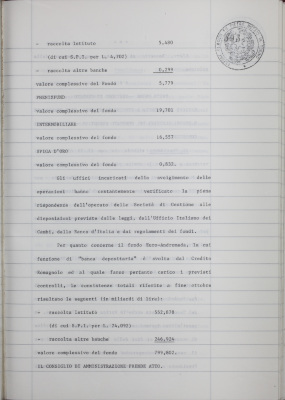 - raccolta istituto 5,480
(di cui S.P.I. per L. 4,702)
- raccolta altre banche 0,299
valore complessivo del fondo 5,779
PROFIFUND
valore complessivo del fondo
INTERMOBILIARE
valore complessivo del fondo
SPIGA D'ORO
valore complessivo del fondo 0,832.
Gli uffici incaricati dello svolgimento delle
operazioni hanno costantemente verificato la piena
rispondenza dell'operato delle Società di Gestione alle
disposizioni previste dalla legge, dall'Ufficio Italiano dei
Cambi, dalla Banca d'Italia e dai regolamenti dei fondi.
Per quanto concerne il fondo Euro-Andromeda, la cui
funzione di "banca depositaria" è svolta dal Credito
Romagnolo ed al quale fanno pertanto carico i previsti
controlli, le consistenze totali riferite a fine ottobre
risultano le seguenti (in miliardi di lire):
- raccolta istituto
(di cui S.P.I. per L. 34,892)
- raccolta altre banche
valore complessivo del fondo
IL CONSIGLIO DI AMMINISTRAZIONE PRENDE ATTO.